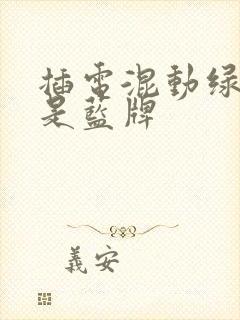 插电混動绿
是藍牌
義安